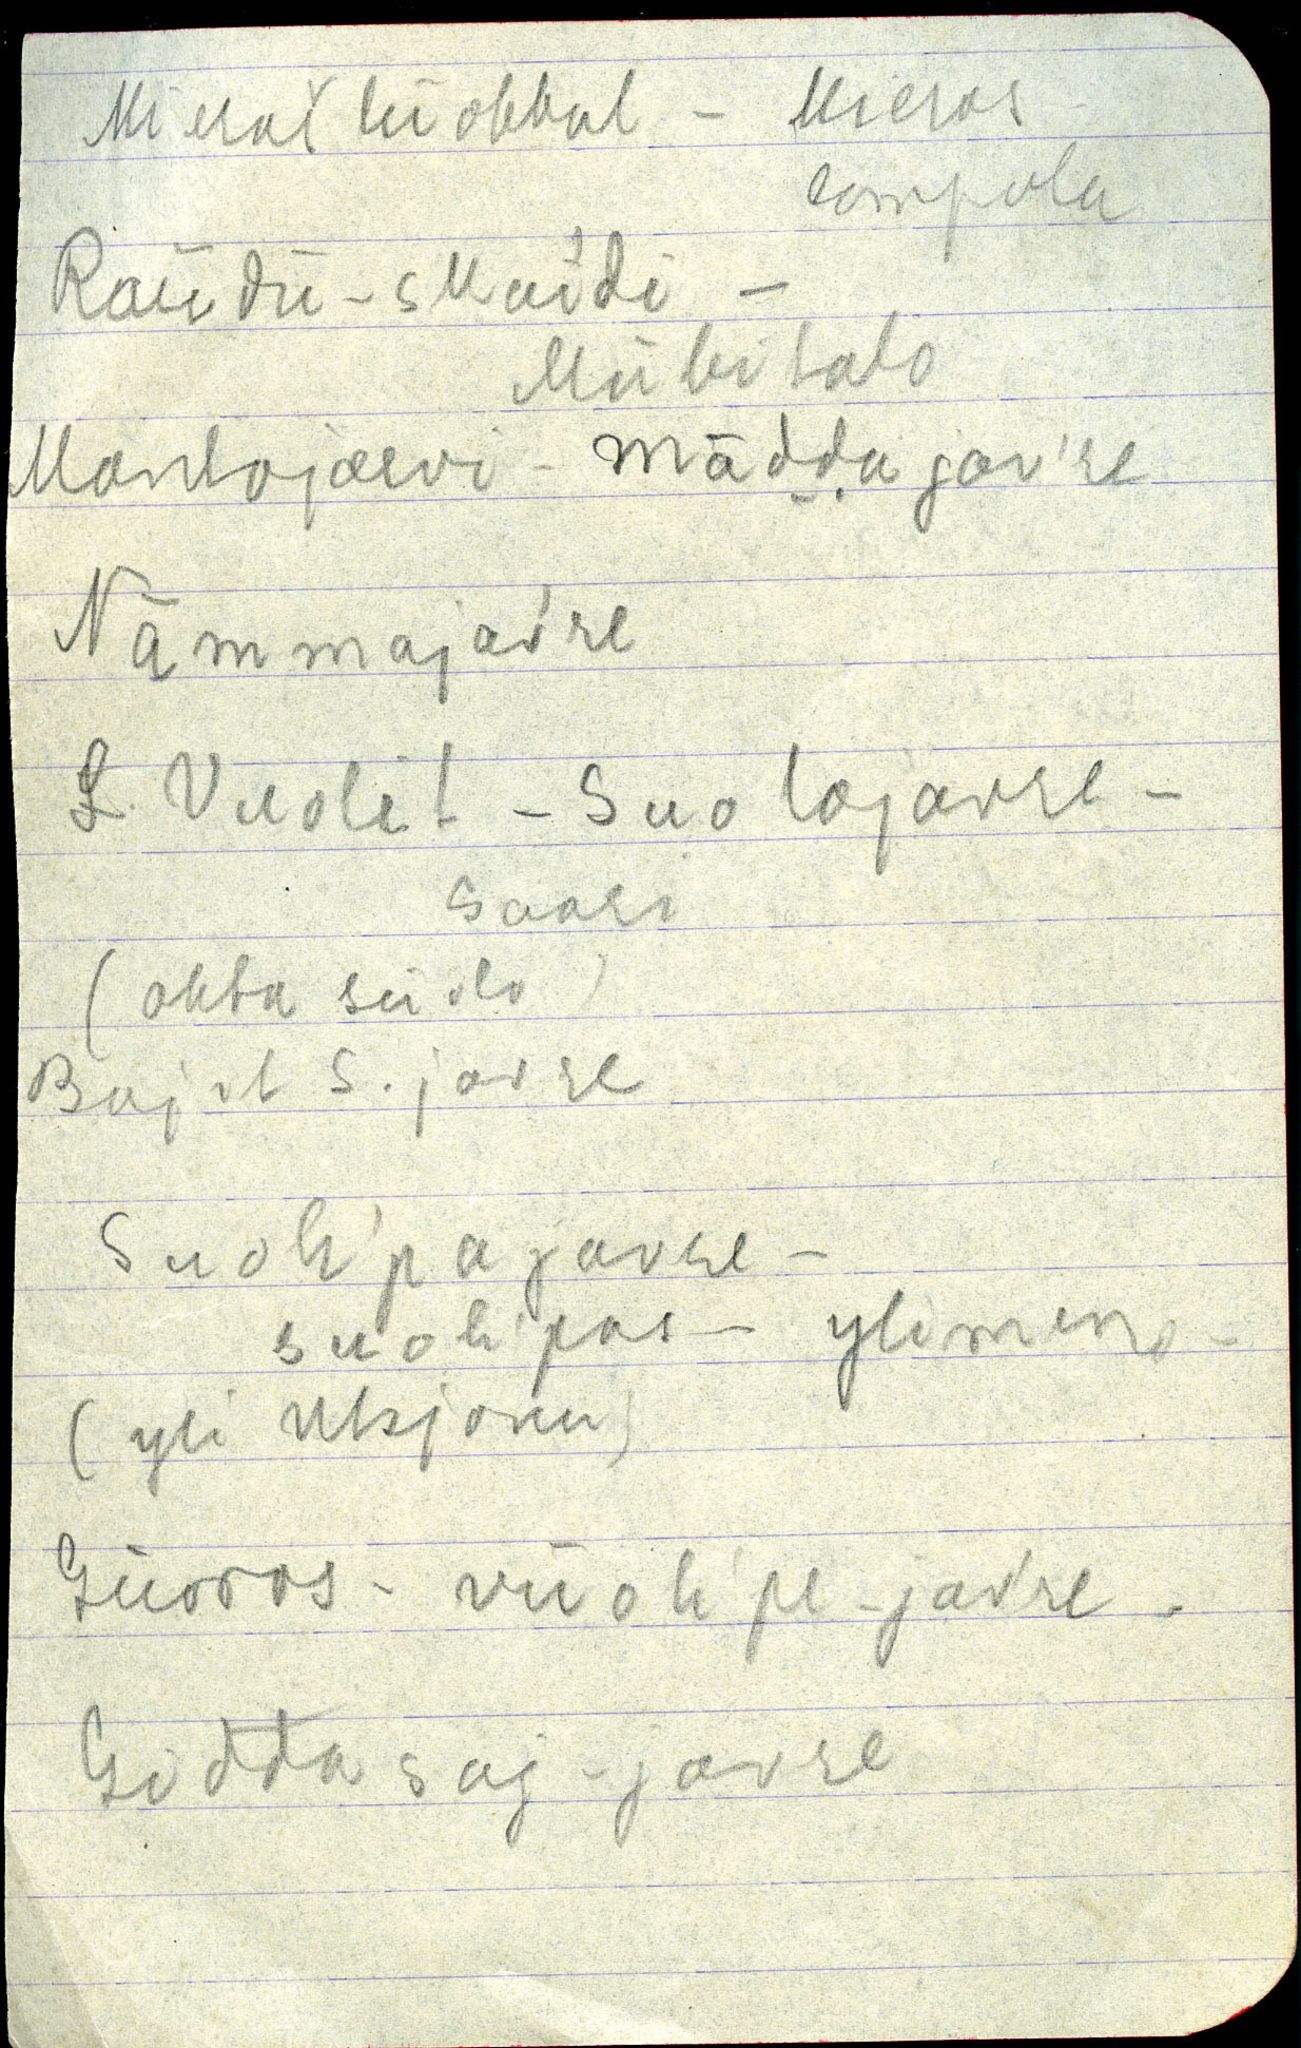 Mieraš luokkal - Mieras
lompola
Raŭdŭ - skai'di -
Mŭkitalo
Mantojærvi - mādda jav're
Nāmmajav're
L. Vuolit - Suolojavre -
saari
(okta suolo)
Bajit S. javre
Suok'pajavre -
suok'pas - ylimeno -
(yli Utsjoen)
Gŭoros - vŭok'pe - jav're -
Giddasaj - javre